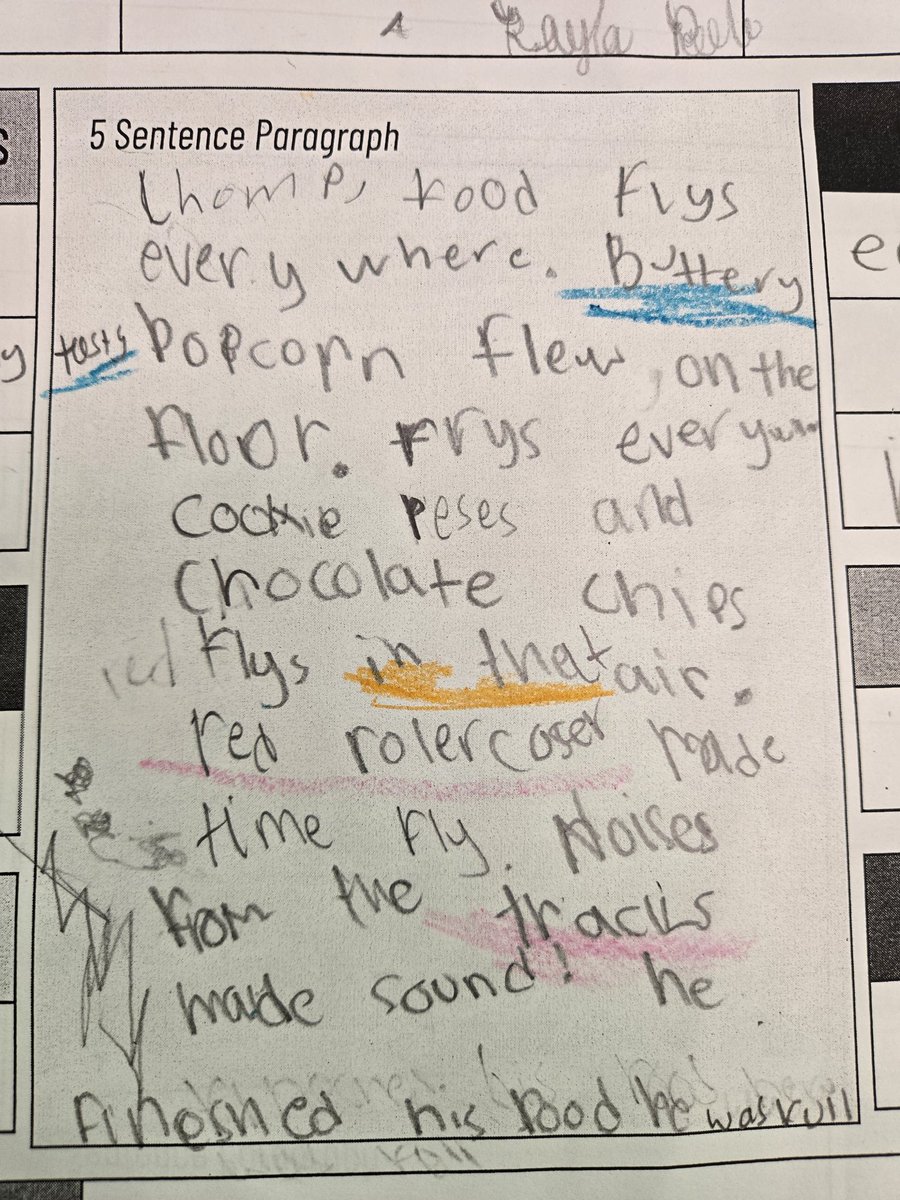 A Kayla
5 Sentence Paragraph
Chomp, food Flys
every where. Buttery
tasty popcorn flew, on the
floor. Frys every
cookie peses and
chocolate chips
red flys in that air.
red rolercoser made
time fly. Noises
from the tracks
made sound! he
fineshed his food he was full